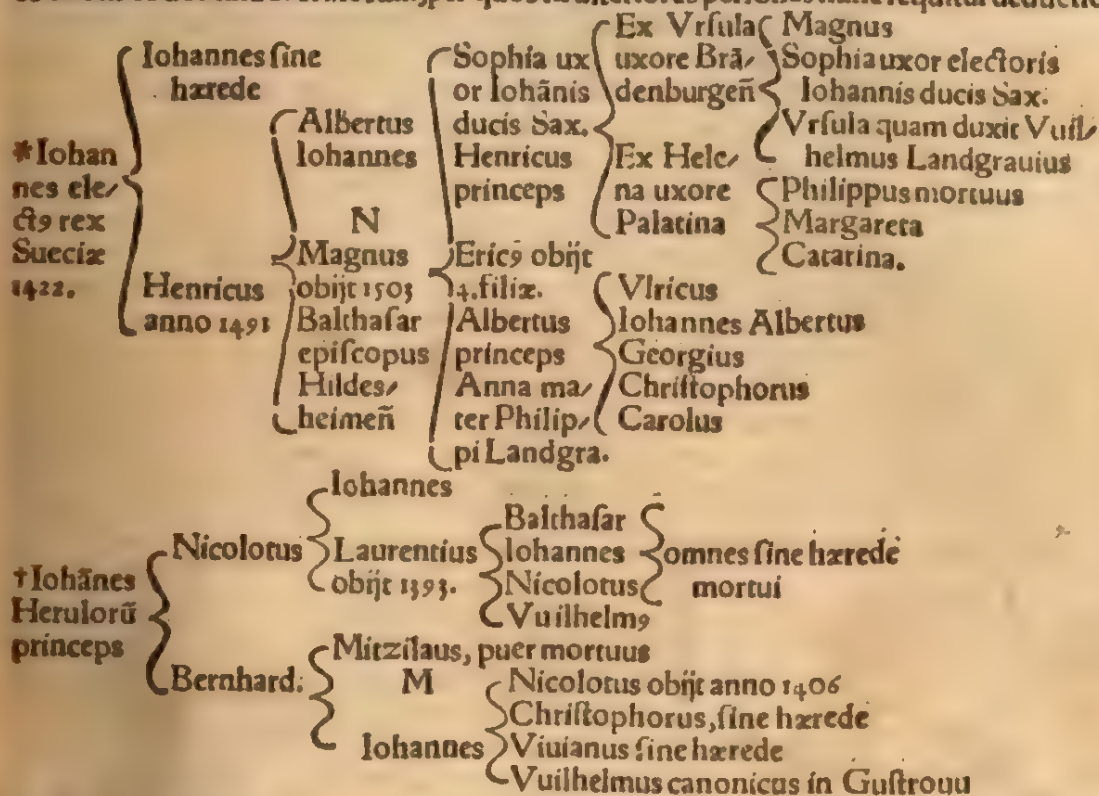 *Iohan
nes ele/
ctꝰ rex
Sueciæ
1422.
Iohannes ſine
hærede
Henricus
anno 1491
Albertus
Iohannes
N
Magnus
obijt 1503
Balthaſar
epiſcopus
Hildes/
heimen̄
Sophia ux
or Iohānis
ducis Sax.
Henricus
princeps
Ericꝰ obijt
4. filiæ.
Albertus
princeps
Anna ma/
ter Philip/
pi Landgra.
Ex Vrſula
uxore Brā/
denburgen̄
Ex Hele/
na uxore
Palatina
Magnus
Sophia uxor electoris
Iohannis ducis Sax.
Vrſula quam duxit Vuil/
helmus Landgrauius
Philippus mortuus
Margareta
Catarina.
Vlricus
Iohannes Albertus
Georgius
Chriſtophorus
Carolus
†Iohānes
Herulorū
princeps
Nicolotus
Bernhard.
Iohannes
Laurentius
obijt 1393.
Balthaſar
Iohannes
Nicolotus
Vuilhelmꝰ
omnes ſine hærede
mortui
Mitzilaus, puer mortuus
M
Iohannes
Nicolotus obijt anno 1406
Chriſtophorus, ſine hærede
Viuianus ſine hærede
Vuilhelmus canonicus in Guſtrouu